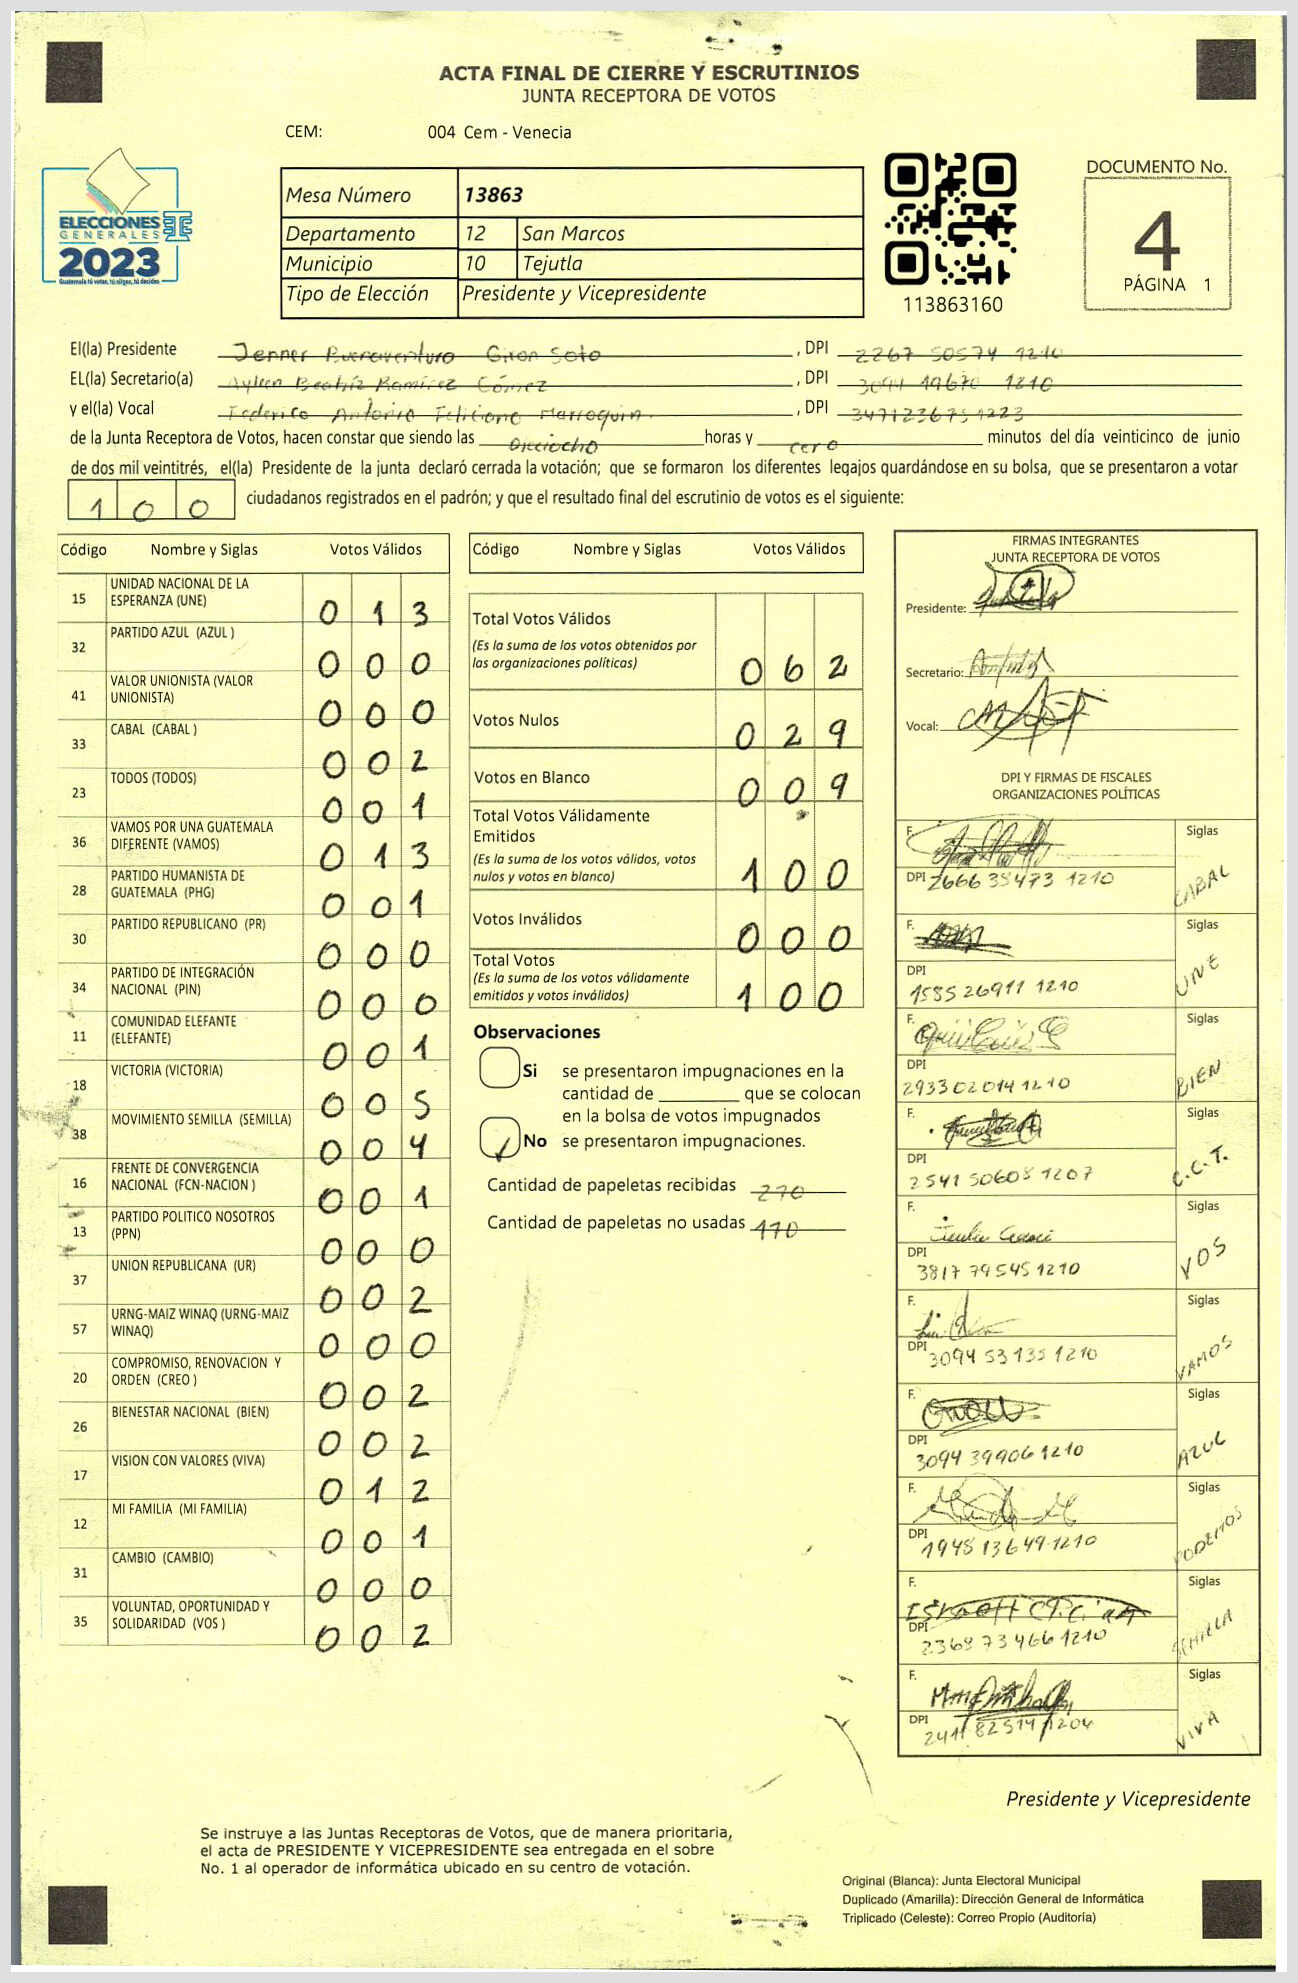 ACTA FINAL DE CIERRE Y ESCRUTINIOS
JUNTA RECEPTORA DE VOTOS
CEM: 004 Cem - Venecia
ELECCIONES
GENERALES
2023
Guatemala tú votas, tú eliges, tú decides
Mesa Número 13863
Departamento 12 San Marcos
Municipio 10 Tejutla
Tipo de Elección Presidente y Vicepresidente
113863160
DOCUMENTO No.
4
PÁGINA 1
El(la) Presidente Jenner Buenaventura Giron Soto, DPI 2267 50574 1210
EL(la) Secretario(a) Aylen Beatriz Ramirez Gómez, DPI 3094 19670 1210
y el(la) Vocal Federico Antonio Feliciano Marroquin, DPI 347123675 1223
de la Junta Receptora de Votos, hacen constar que siendo las Dieciocho horas y cero minutos del día veinticinco de junio
de dos mil veintitrés, el(la) Presidente de la junta declaró cerrada la votación; que se formaron los diferentes legajos quardándose en su bolsa, que se presentaron a votar
100 ciudadanos registrados en el padrón; y que el resultado final del escrutinio de votos es el siguiente:
Código Nombre y Siglas Votos Válidos
15 UNIDAD NACIONAL DE LA ESPERANZA (UNE) 013
32 PARTIDO AZUL (AZUL ) 000
41 VALOR UNIONISTA (VALOR UNIONISTA) 000
33 CABAL (CABAL ) 002
23 TODOS (TODOS) 001
36 VAMOS POR UNA GUATEMALA DIFERENTE (VAMOS) 013
28 PARTIDO HUMANISTA DE GUATEMALA (PHG) 001
30 PARTIDO REPUBLICANO (PR) 000
34 PARTIDO DE INTEGRACIÓN NACIONAL (PIN) 000
11 COMUNIDAD ELEFANTE (ELEFANTE) 001
18 VICTORIA (VICTORIA) 005
38 MOVIMIENTO SEMILLA (SEMILLA) 004
16 FRENTE DE CONVERGENCIA NACIONAL (FCN-NACION ) 001
13 PARTIDO POLITICO NOSOTROS (PPN) 000
37 UNION REPUBLICANA (UR) 002
57 URNG-MAIZ WINAQ (URNG-MAIZ WINAQ) 000
20 COMPROMISO, RENOVACION Y ORDEN (CREO ) 002
26 BIENESTAR NACIONAL (BIEN) 002
17 VISION CON VALORES (VIVA) 012
12 MI FAMILIA (MI FAMILIA) 001
31 CAMBIO (CAMBIO) 000
35 VOLUNTAD, OPORTUNIDAD Y SOLIDARIDAD (VOS ) 002
Código Nombre y Siglas Votos Válidos
Total Votos Válidos
(Es la suma de los votos obtenidos por
las organizaciones políticas) 062
Votos Nulos 029
Votos en Blanco 009
Total Votos Válidamente
Emitidos
(Es la suma de los votos válidos, votos
nulos y votos en blanco) 100
Votos Inválidos 000
Total Votos
(Es la suma de los votos válidamente
emitidos y votos inválidos) 100
Observaciones
Si se presentaron impugnaciones en la
cantidad de ________ que se colocan
en la bolsa de votos impugnados
No se presentaron impugnaciones.
Cantidad de papeletas recibidas 270
Cantidad de papeletas no usadas 170
FIRMAS INTEGRANTES
JUNTA RECEPTORA DE VOTOS
Presidente:
Secretario:
Vocal:
DPI Y FIRMAS DE FISCALES
ORGANIZACIONES POLÍTICAS
F. Siglas
DPI 2666 38473 1210 CABAL
F. Siglas
DPI
1585 26911 1210 UNE
F. Siglas
DPI
2933020141210 BIEN
F. Siglas
DPI
2541 50608 1207 C.C.T.
F. Siglas
DPI
3817 79545 1210 VOS
F. Siglas
DPI 3094 53135 1210 VAMOS
F. Siglas
DPI
3094 39906 1210 AZUL
F. Siglas
DPI 1948 13649 1210 PODEMOS
F. Siglas
DPI
2368 73466 1210 SEMILLA
F. Siglas
DPI 2411 82514 1204 VIVA
Presidente y Vicepresidente
Se instruye a las Juntas Receptoras de Votos, que de manera prioritaria,
el acta de PRESIDENTE Y VICEPRESIDENTE sea entregada en el sobre
No. 1 al operador de informática ubicado en su centro de votación.
Original (Blanca): Junta Electoral Municipal
Duplicado (Amarilla): Dirección General de Informática
Triplicado (Celeste): Correo Propio (Auditoría)